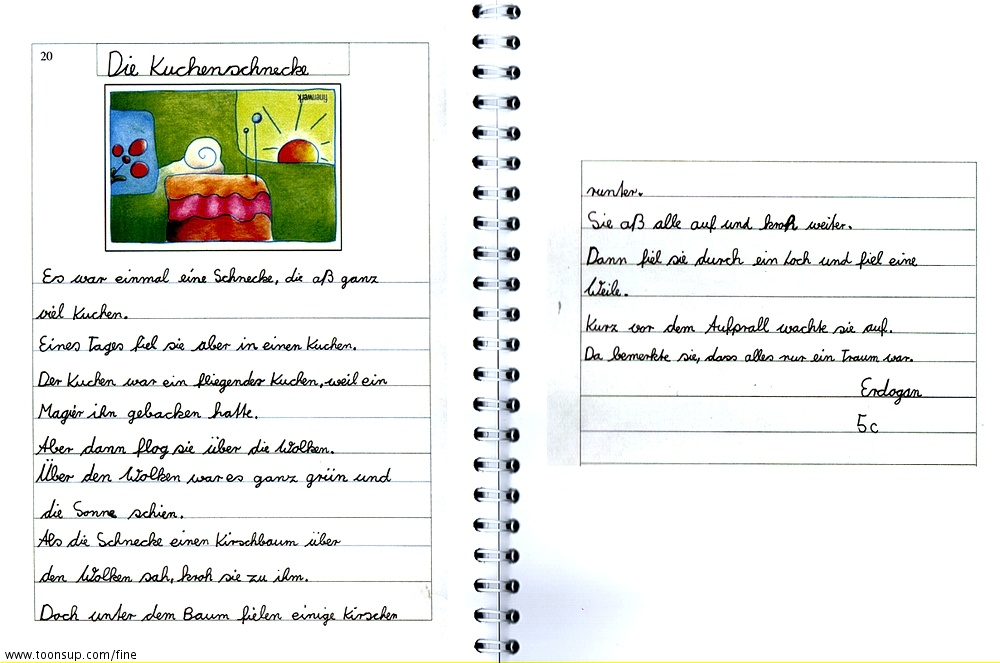 20
Die Kuchenschnecke
finenwerk
Es war einmal eine Schnecke, die aß ganz
viel Kuchen.
Eines Tages fiel sie aber in einen Kuchen.
Der Kuchen war ein fliegender Kuchen, weil ein
Magier ihn gebacken hatte.
Aber dann flog sie über die Wolken.
Über den Wolken war es ganz grün und
die Sonne schien.
Als die Schnecke einen Kirschbaum über
den Wolken sah, kroh sie zu ihm.
Doch unter dem Baum fielen einige Kirschen
runter.
Sie aß alle auf und kroh weiter.
Dann fiel sie durch ein Loch und fiel eine
Weile.
Kurz vor dem Aufprall wachte sie auf.
Da bemerkte sie, dass alles nur ein Traum war.
Erdogan
5c
www.toonsup.com/fine